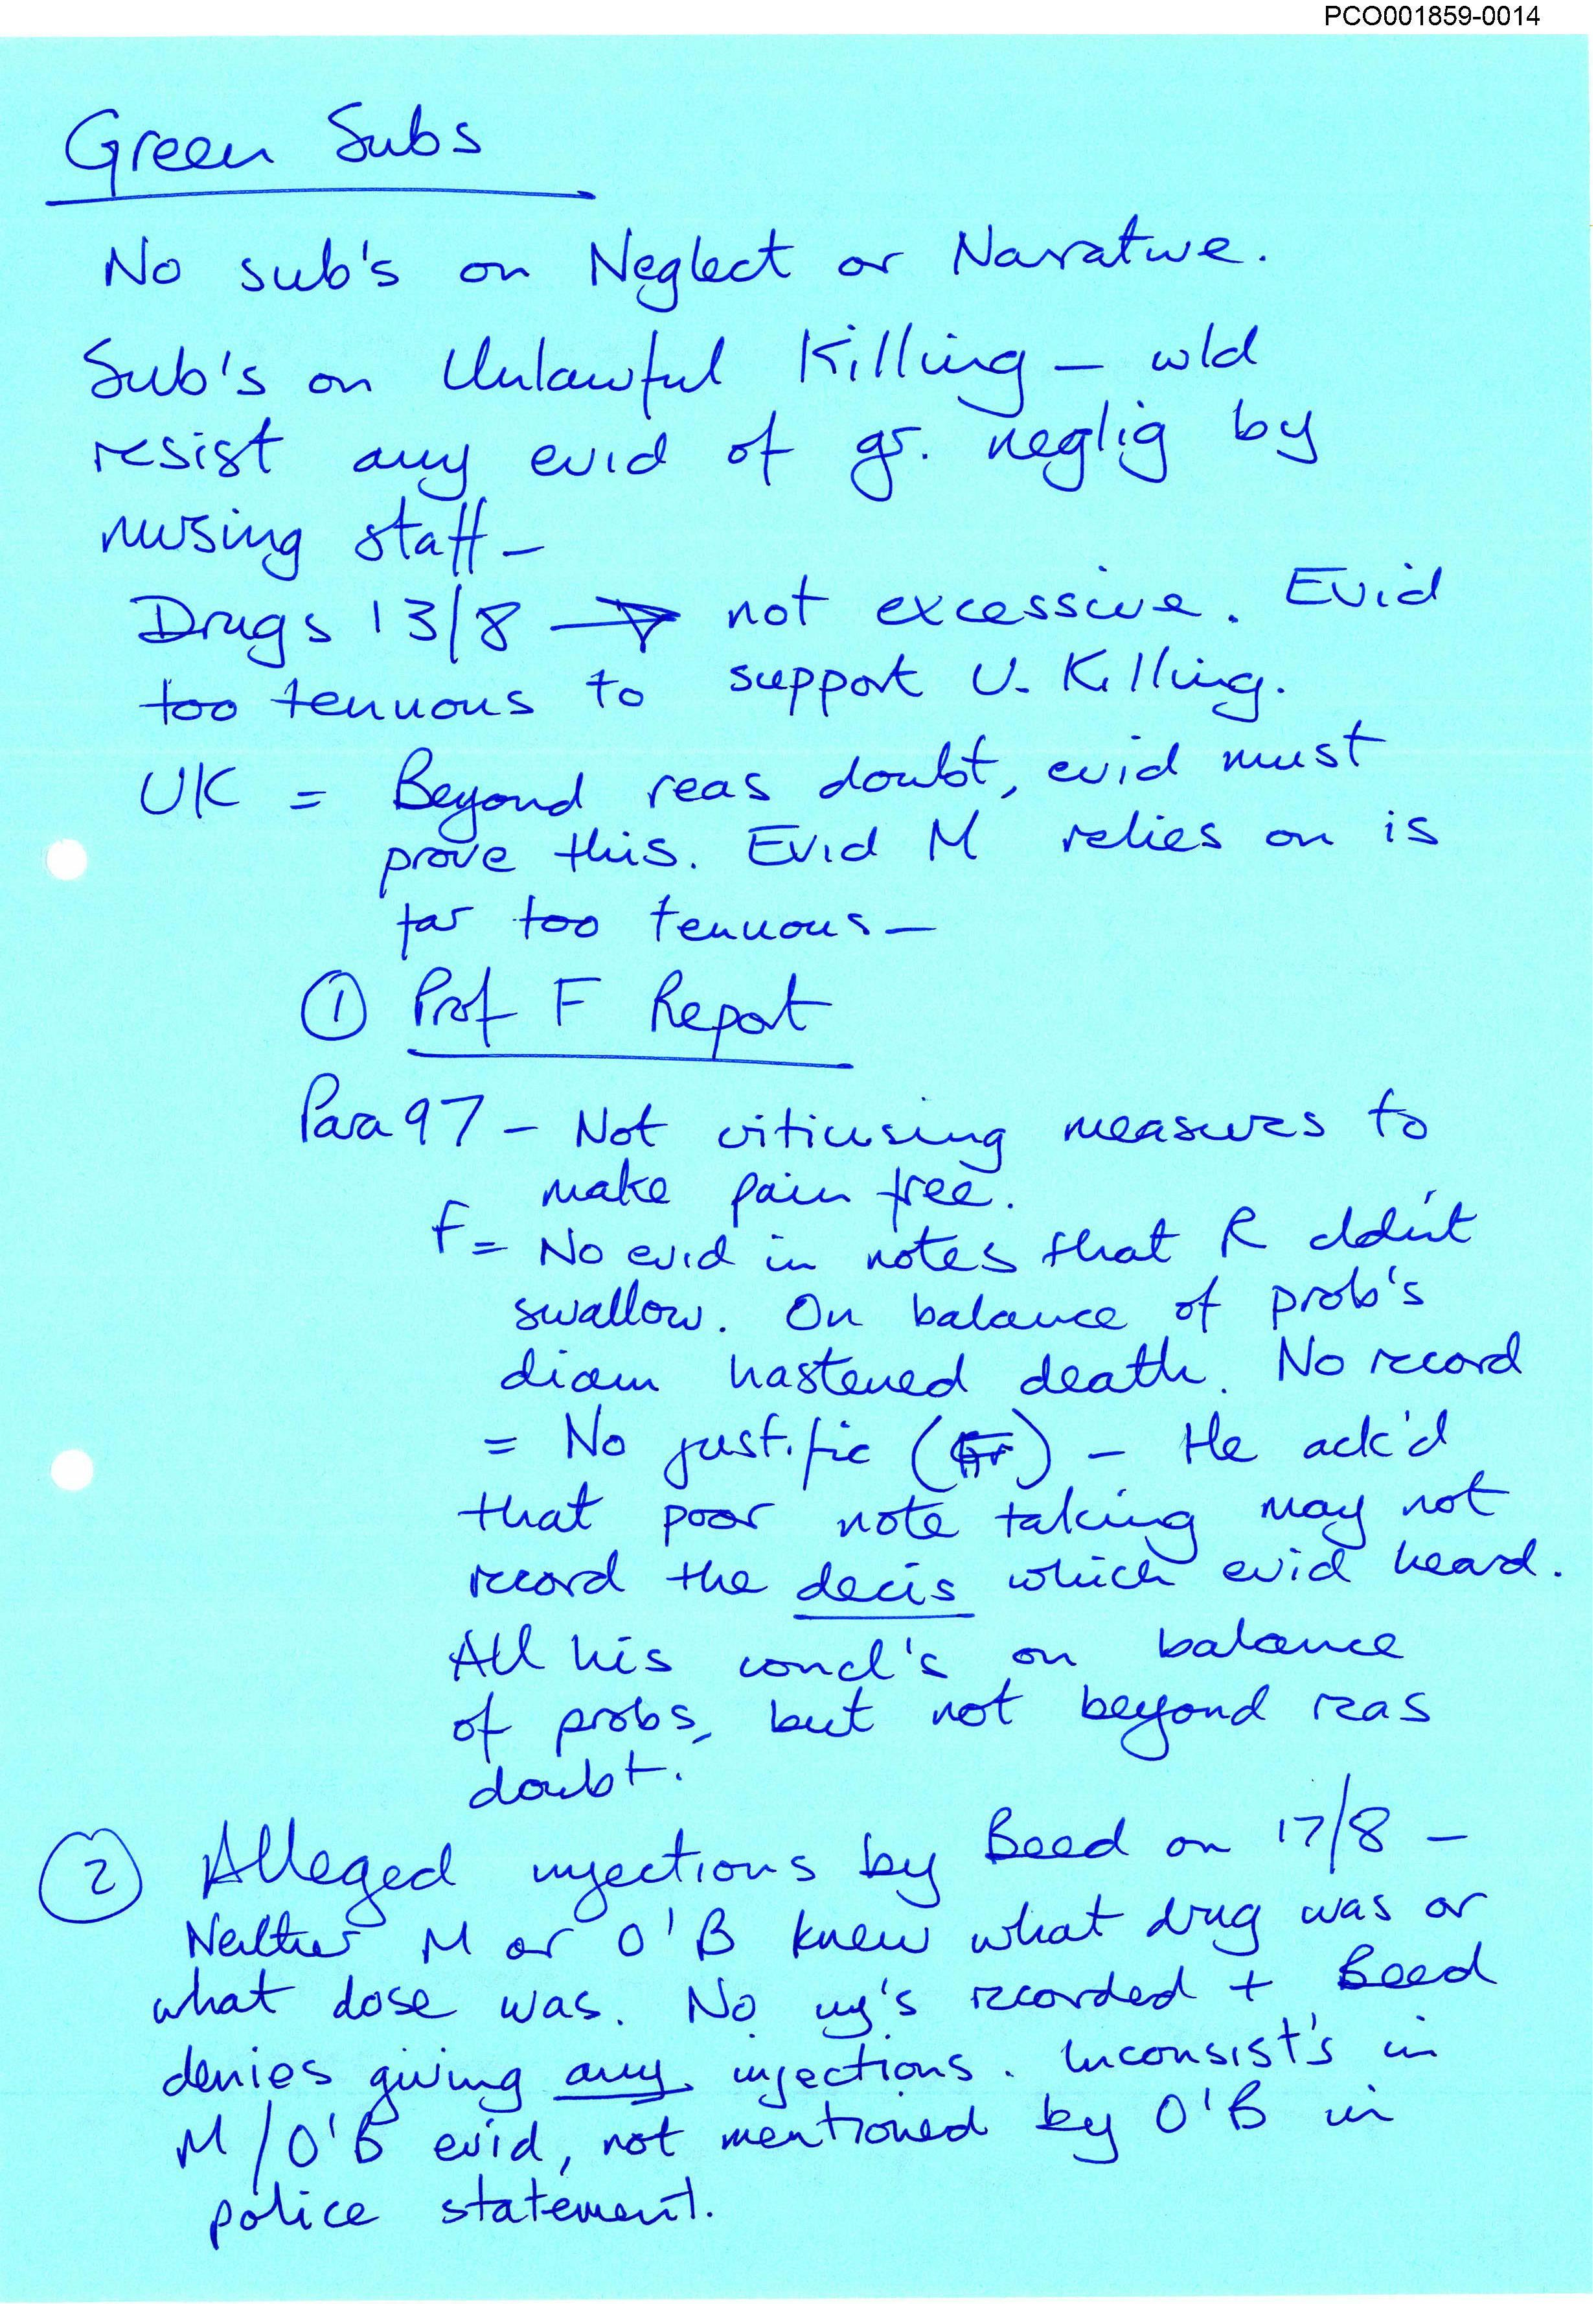 PCO001859-0014
Green Subs
No sub's on Neglect or Narrative.
Sub's on Unlawful Killing – wld
resist any evid of gr. neglig by
nursing staff –
Drugs 13/8 → not excessive. Evid
too tenuous to support U. Killing.
UK = Beyond reas doubt, evid must
prove this. Evid M relies on is
far too tenuous –
① Prof F Report
Para 97 – Not criticising measures to
make pain free.
F = No evid in notes that R cldn't
swallow. On balance of prob's
diam hastened death. No record
= No justific ( ) – He ack'd
that poor note taking may not
record the decis which evid heard.
All his concl's on balance
of probs, but not beyond reas
doubt.
② Alleged injections by Beed on 17/8 –
Neither M or O'B knew what drug was or
what dose was. No inj's recorded + Beed
denies giving any injections. Inconsist's in
M/O'B evid, not mentioned by O'B in
police statement.